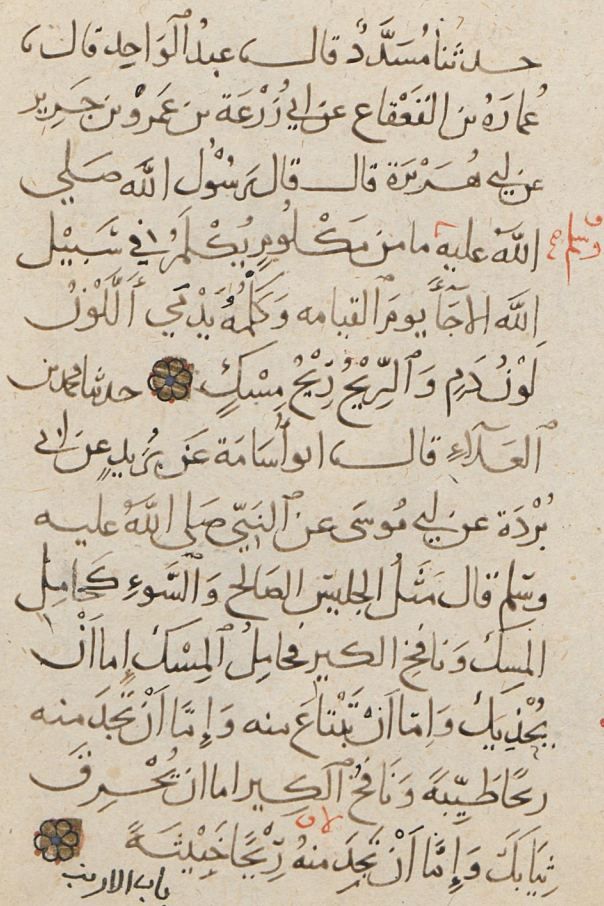 حدثنا مُسَدَّدٌ قال عبدُ ٱلْوَاحِدِ قال
عُمَارَةُ بن القَعْقَاع عن ابي زُرْعَةَ بن عَمْرِو بن جَرِيرٍ
عن ابي هُرَيْرَةَ قال قال رَسُوْلُ اللَّه صَلي
اللَّهُ عليه ما من مَكْلُومٍ يُكْلَمُ في سَبِيْلِ
وسلم
اللَّه الا جَآءَ يومَ ٱلقيامه وَكَلْمُهُ يَدْمَي أَللَّوْنُ
لَوْنُ دَمٍ وَٱلرِّيْحُ رِيْحُ مِسْكٍ حدثنا محمد بن
ٱلعَلَآءِ قال ابو أُسَامَةَ عَن بُرَيدٍ عن ابي
بُرْدَةَ عن ابي مُوسَى عن ٱلنَبِيّ صَلى اللَّهُ عليه
وسَلم قال مَثَلُ الجليسِ الصَالح وَٱلسَّوءِ كَحَامِلِ
المِسكِ وَنَافخِ الكيرِ فحامِلُ ٱلمِسْكِ إما أَنْ
يُحْذِيَكَ وَاِمّا أَنْ تَبْتَاعَ منه وَإِمَّا أَنْ تَجِدَ منه
ريحًا طَيّبَةً وَنَافخُ ٱلكِيرِ اما ان يُحْرِقَ
ثِيَابَكَ وَإِمَّا أَنْ تَجِدَ منهُ رِيْحًا خَبِيْثَةً
باب الارنب